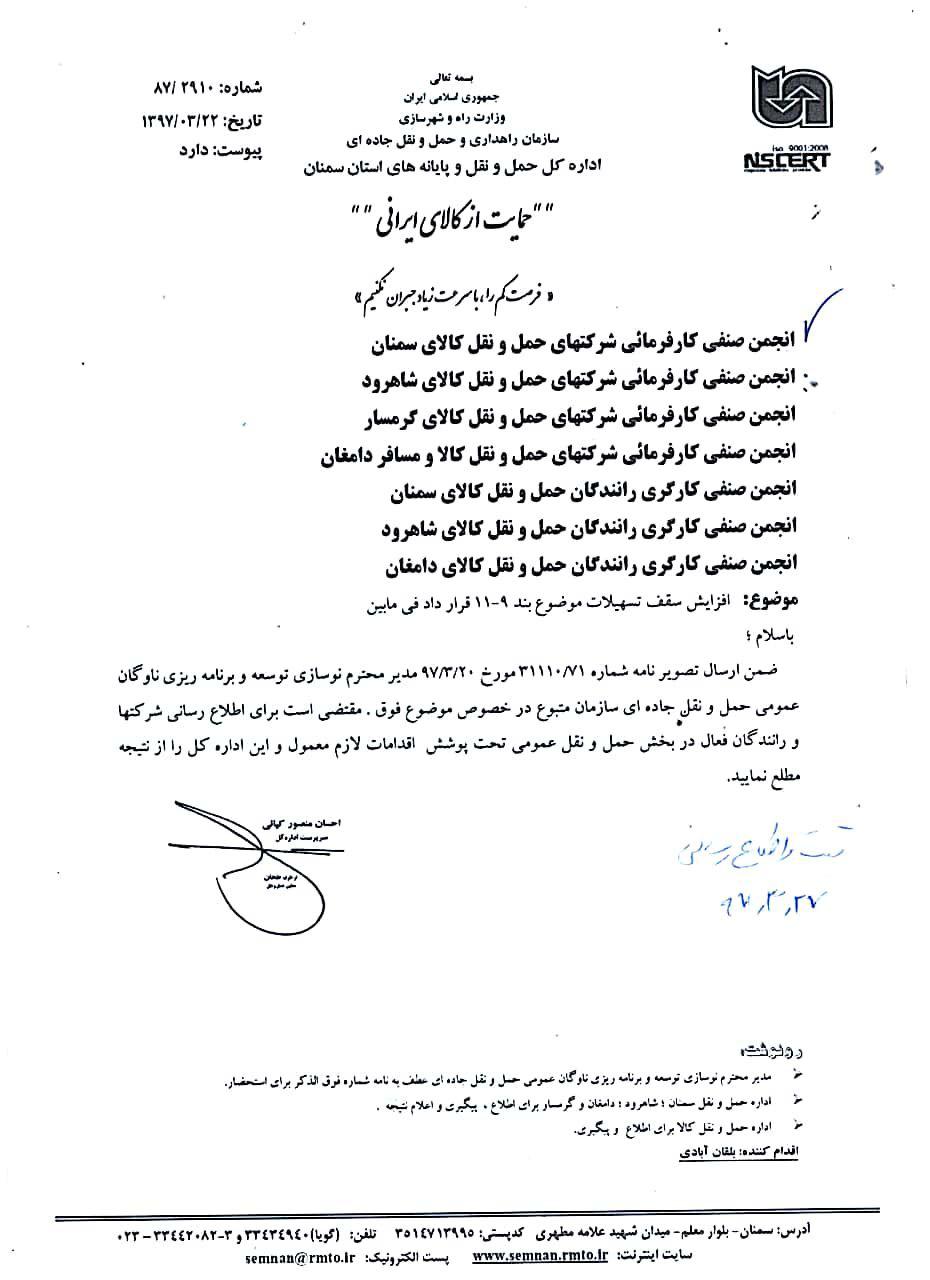 بسمه تعالی
جمهوری اسلامی ایران
وزارت راه و شهرسازی
سازمان راهداری و حمل و نقل جاده ای
اداره کل حمل و نقل و پایانه های استان سمنان
شماره: ۲۹۱۰ /۸۷
تاریخ: ۱۳۹۷/۰۳/۲۲
پیوست: دارد
iso 9001:2008
NSCERT
""حمایت از کالای ایرانی""
« فرصت کم را، با سرعت زیاد جبران نکنیم »
انجمن صنفی کارفرمائی شرکتهای حمل و نقل کالای سمنان
انجمن صنفی کارفرمائی شرکتهای حمل و نقل کالای شاهرود
انجمن صنفی کارفرمائی شرکتهای حمل و نقل کالای گرمسار
انجمن صنفی کارفرمائی شرکتهای حمل و نقل کالا و مسافر دامغان
انجمن صنفی کارگری رانندگان حمل و نقل کالای سمنان
انجمن صنفی کارگری رانندگان حمل و نقل کالای شاهرود
انجمن صنفی کارگری رانندگان حمل و نقل کالای دامغان
موضوع: افزایش سقف تسهیلات موضوع بند ۹-۱۱ قرار داد فی مابین
باسلام ؛
ضمن ارسال تصویر نامه شماره ۳۱۱۱۰/۷۱ مورخ ۹۷/۳/۲۰ مدیر محترم نوسازی توسعه و برنامه ریزی ناوگان
عمومی حمل و نقل جاده ای سازمان متبوع در خصوص موضوع فوق . مقتضی است برای اطلاع رسانی شرکتها
و رانندگان فعال در بخش حمل و نقل عمومی تحت پوشش اقدامات لازم معمول و این اداره کل را از نتیجه
مطلع نمایید.
احسان منصور کیائی
سرپرست اداره کل
از طرف
ثبت و اطلاع رسانی
۹۷,۳,۲۷
رونوشت:
مدیر محترم نوسازی توسعه و برنامه ریزی ناوگان عمومی حمل و نقل جاده ای عطف به نامه شماره فوق الذکر برای استحضار.
اداره حمل و نقل سمنان ؛ شاهرود ؛ دامغان و گرمسار برای اطلاع ، پیگیری و اعلام نتیجه .
اداره حمل و نقل کالا برای اطلاع و پیگیری.
اقدام کننده: بلقان آبادی
آدرس: سمنان- بلوار معلم- میدان شهید علامه مطهری کدپستی: ۳۵۱۴۷۱۳۹۹۵ تلفن: (گویا)۳۳۴۳۴۹۴۰ و ۳-۳۳۴۴۲۰۸۲ - ۰۲۳
سایت اینترنت: www.semnan.rmto.ir پست الکترونیک: semnan@rmto.ir